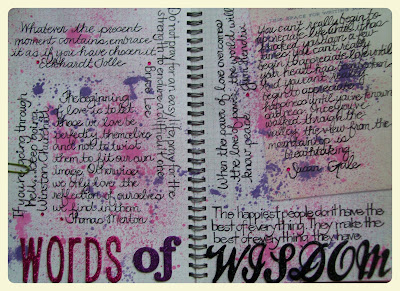 Whatever the present
moment contains, embrace
it as if you have chosen it
• Eckhardt Tolle •
If you're going through
hell, keep going
• Winston Churchill •
The beginning
of love is to let
those we love be
perfectly themselves
and not to twist
them to fit our own
image. Otherwise
we only love the
reflection of ourselves
we find in them
• Thomas Merton
Do not pray for an easy life, pray for the
strength to endure a difficult one
• Bruce Lee
When the power of love overcomes
the love of power, the world will
know peace
• Jimi Hendrix
you can't really begin to
appreciate life until it has
knocked you down a few
times. You can't really
begin to appreciate love until
your heart has been
And you can't really
begin to appreciate
happiness until you've known
sadness. Once you've
walked through the
valley, the view from the
mountaintop is
breathtaking.
Susan Gale
The happiest people don't have the
best of everything. They make the
best of everything they have
WORDS of WISDOM